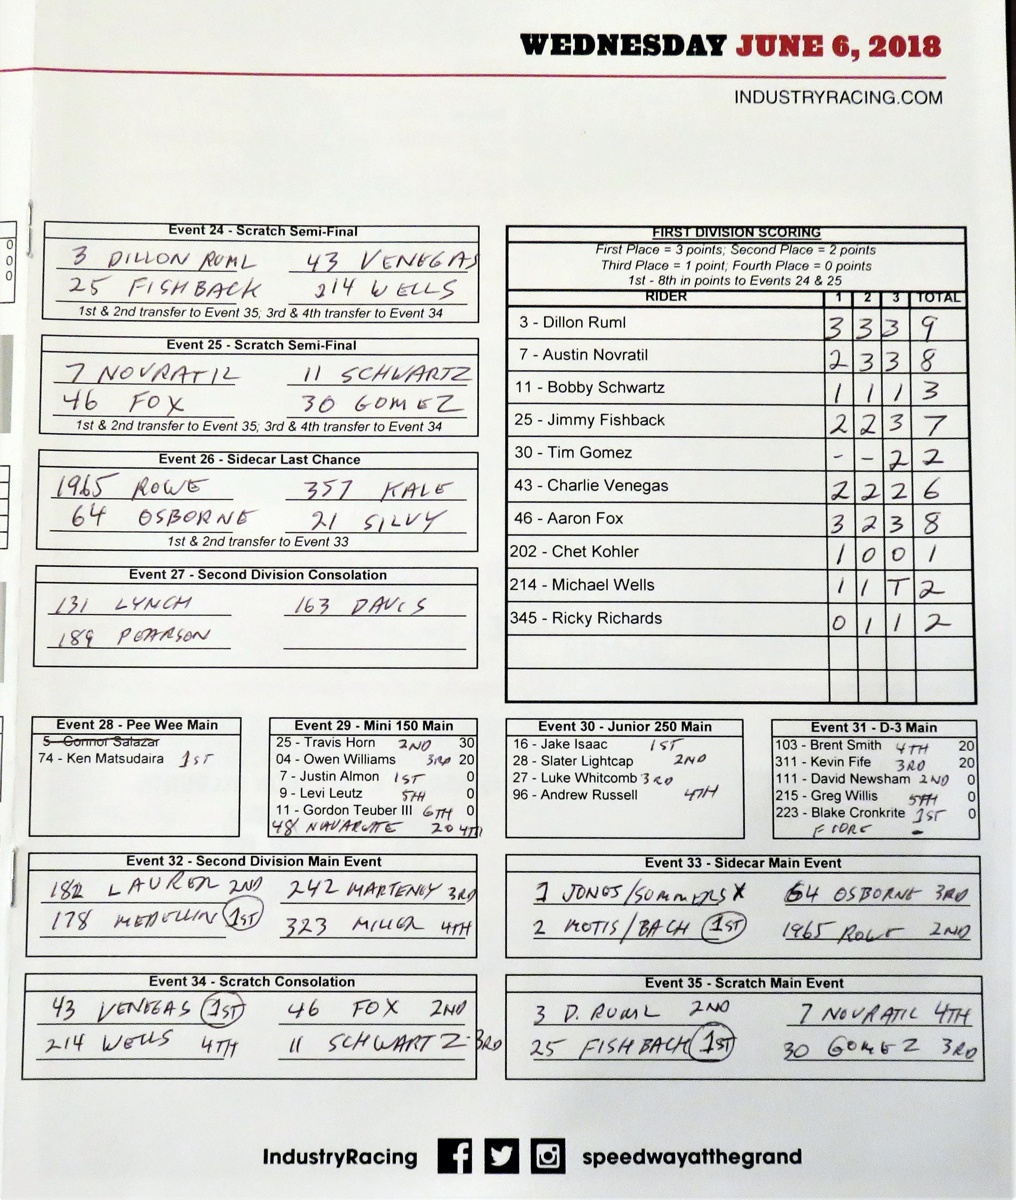 WEDNESDAY JUNE 6, 2018
INDUSTRYRACING.COM
0
0
0
Event 24 - Scratch Semi-Final
3 DILLON RUML 43 VENEGAS
25 FISHBACK 214 WELLS
1st & 2nd transfer to Event 35; 3rd & 4th transfer to Event 34
Event 25 - Scratch Semi-Final
7 NOVRATIL 11 SCHWARTZ
46 FOX 30 GOMEZ
1st & 2nd transfer to Event 35; 3rd & 4th transfer to Event 34
Event 26 - Sidecar Last Chance
1965 ROWE 357 KALE
64 OSBORNE 21 SILVY
1st & 2nd transfer to Event 33
Event 27 - Second Division Consolation
131 LYNCH 163 DAVIS
189 PEARSON
FIRST DIVISION SCORING
First Place = 3 points; Second Place = 2 points
Third Place = 1 point; Fourth Place = 0 points
1st - 8th in points to Events 24 & 25
RIDER 1 2 3 TOTAL
3 - Dillon Ruml 3 3 3 9
7 - Austin Novratil 2 3 3 8
11 - Bobby Schwartz 1 1 1 3
25 - Jimmy Fishback 2 2 3 7
30 - Tim Gomez - - 2 2
43 - Charlie Venegas 2 2 2 6
46 - Aaron Fox 3 2 3 8
202 - Chet Kohler 1 0 0 1
214 - Michael Wells 1 1 T 2
345 - Ricky Richards 0 1 1 2
Event 28 - Pee Wee Main
5 - Connor Salazar
74 - Ken Matsudaira 1ST
Event 29 - Mini 150 Main
25 - Travis Horn 2ND 30
04 - Owen Williams 3RD 20
7 - Justin Almon 1ST 0
9 - Levi Leutz 5TH 0
11 - Gordon Teuber III 6TH 0
48 NAVARETE 20 4TH
Event 30 - Junior 250 Main
16 - Jake Isaac 1ST
28 - Slater Lightcap 2ND
27 - Luke Whitcomb 3RD
96 - Andrew Russell 4TH
Event 31 - D-3 Main
103 - Brent Smith 4TH 20
311 - Kevin Fife 3RD 20
111 - David Newsham 2ND 0
215 - Greg Willis 5TH 0
223 - Blake Cronkrite 1ST 0
FIORE -
Event 32 - Second Division Main Event
182 LAURER 2ND 242 MARTENEY 3RD
178 MEDELLIN 1ST 323 MILLER 4TH
Event 33 - Sidecar Main Event
1 JONES/SUMMERS X 64 OSBORNE 3RD
2 MOTIS/BACH 1ST 1965 ROWE 2ND
Event 34 - Scratch Consolation
43 VENEGAS 1ST 46 FOX 2ND
214 WELLS 4TH 11 SCHWARTZ 3RD
Event 35 - Scratch Main Event
3 D. RUML 2ND 7 NOVRATIL 4TH
25 FISHBACK 1ST 30 GOMEZ 3RD
IndustryRacing speedwayatthegrand